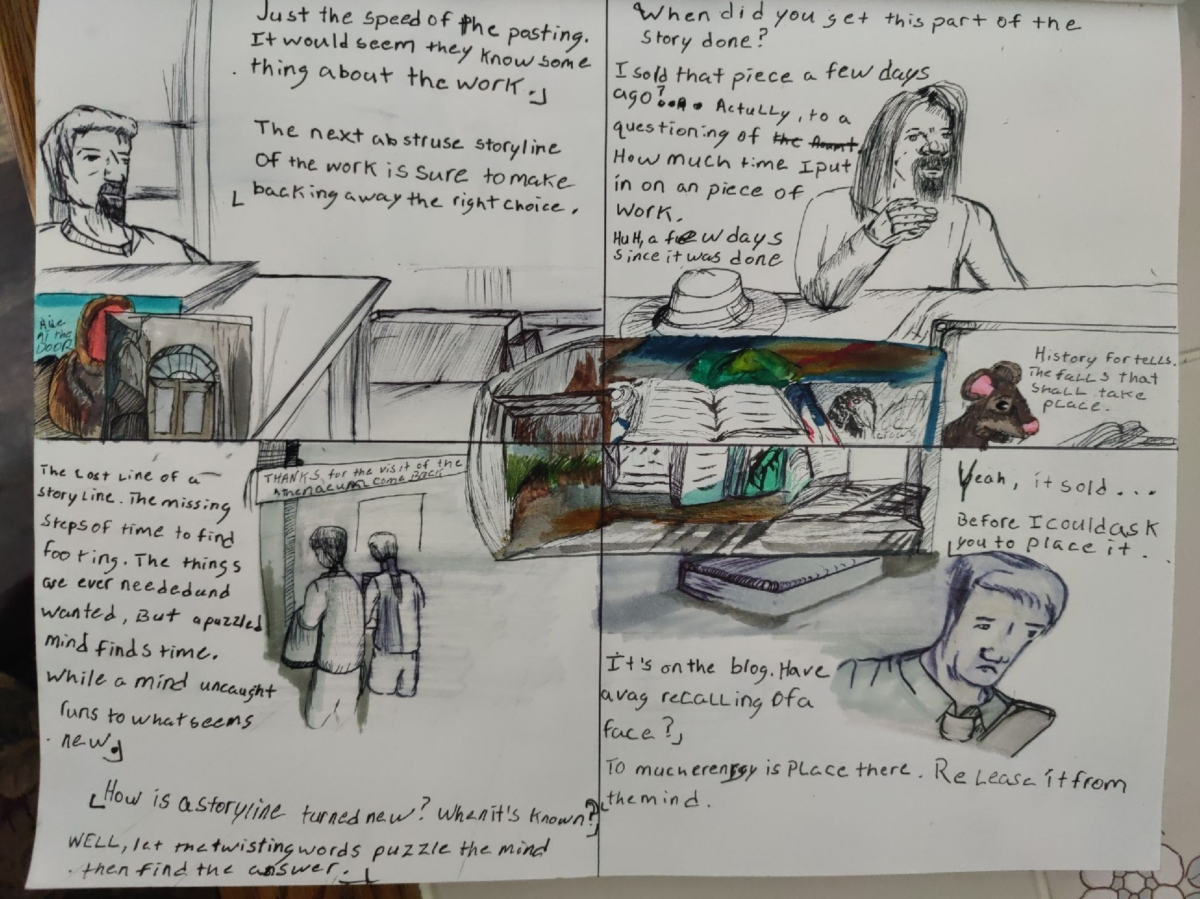 Just the speed of the posting.
It would seem they know some
thing about the work.
The next abstruse storyline
Of the work is sure to make
backing away the right choice.
When did you get this part of the
story done?
I sold that piece a few days
ago?.... Actully, to a
questioning of the
How much time I put
in on an piece of
work.
HuH, a few days
since it was done
At the
DOOR
History for tells.
The falls that
shall take
place.
The Lost Line of a
story Line. The missing
steps of time to find
footing. The things
are ever needed und
wanted, But a puzzled
mind finds time.
While a mind uncaught
runs to what seems
new.
THANKS, for the visit of the
come Back
How is a storyline turned new? When it's known?
WELL, let the twisting words puzzle the mind
then find the answer.
Yeah, it sold ...
Before I could ask
you to place it.
It's on the blog. Have
avag recalling Of a
face?
To much erenrgy is Place there. Release it from
the mind.